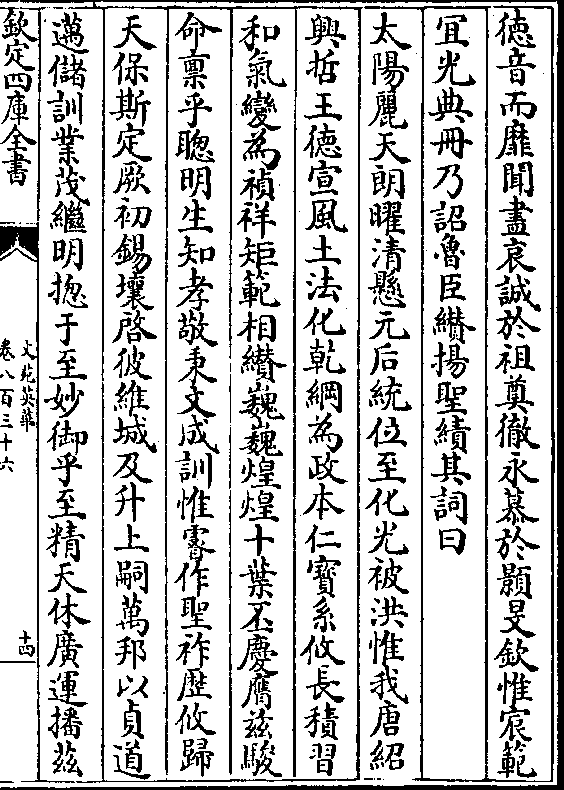 德音而靡聞盡哀誠於祖奠徹永慕於顥旻欽惟宸範
宜光典冊乃詔魯臣纘揚聖績其詞曰
太陽麗天朗曜清懸元后統位至化光被洪惟我唐紹
興哲王德宣風土法化乾綱為政本仁寳系攸長積習
和氣變為禎祥矩範相纘巍巍煌煌十葉丕慶膺兹駿
命禀乎聰明生知孝敬秉文成訓惟睿作聖祚歴攸歸
天保斯定厥初錫壤啓彼維城及升上嗣萬邦以貞道
邁儲訓業茂繼明揔于至妙御乎至精天休廣運播兹
欽定四庫全書
文苑英華
卷八百三十六
十四